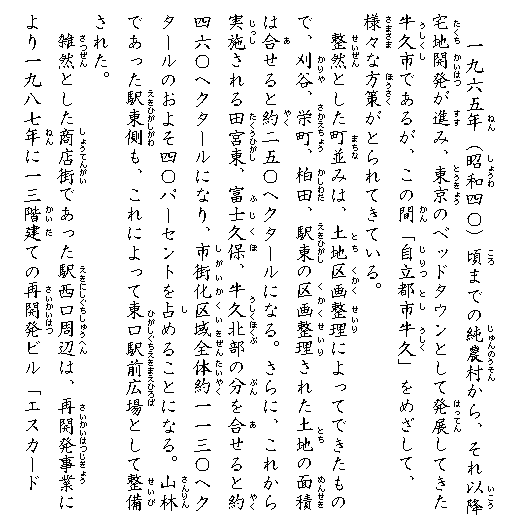 一九六五年（昭和四〇）頃までの純農村から、それ以降
宅地開発が進み、東京のベッドタウンとして発展してきた
牛久市であるが、この間「自立都市牛久」をめざして、
様々な方策がとられてきている。
整然とした町並みは、土地区画整理によってできたもの
で、刈谷、栄町、柏田、駅東の区画整理された土地の面積
は合せると約二五〇ヘクタールになる。さらに、これから
実施される田宮東、富士久保、牛久北部の分を合せると約
四六〇ヘクタールになり、市街化区域全体約一一三〇ヘク
タールのおよそ四〇パーセントを占めることになる。山林
であった駅東側も、これによって東口駅前広場として整備
された。
雑然とした商店街であった駅西口周辺は、再開発事業に
より一九八七年に一三階建ての再開発ビル「エスカード